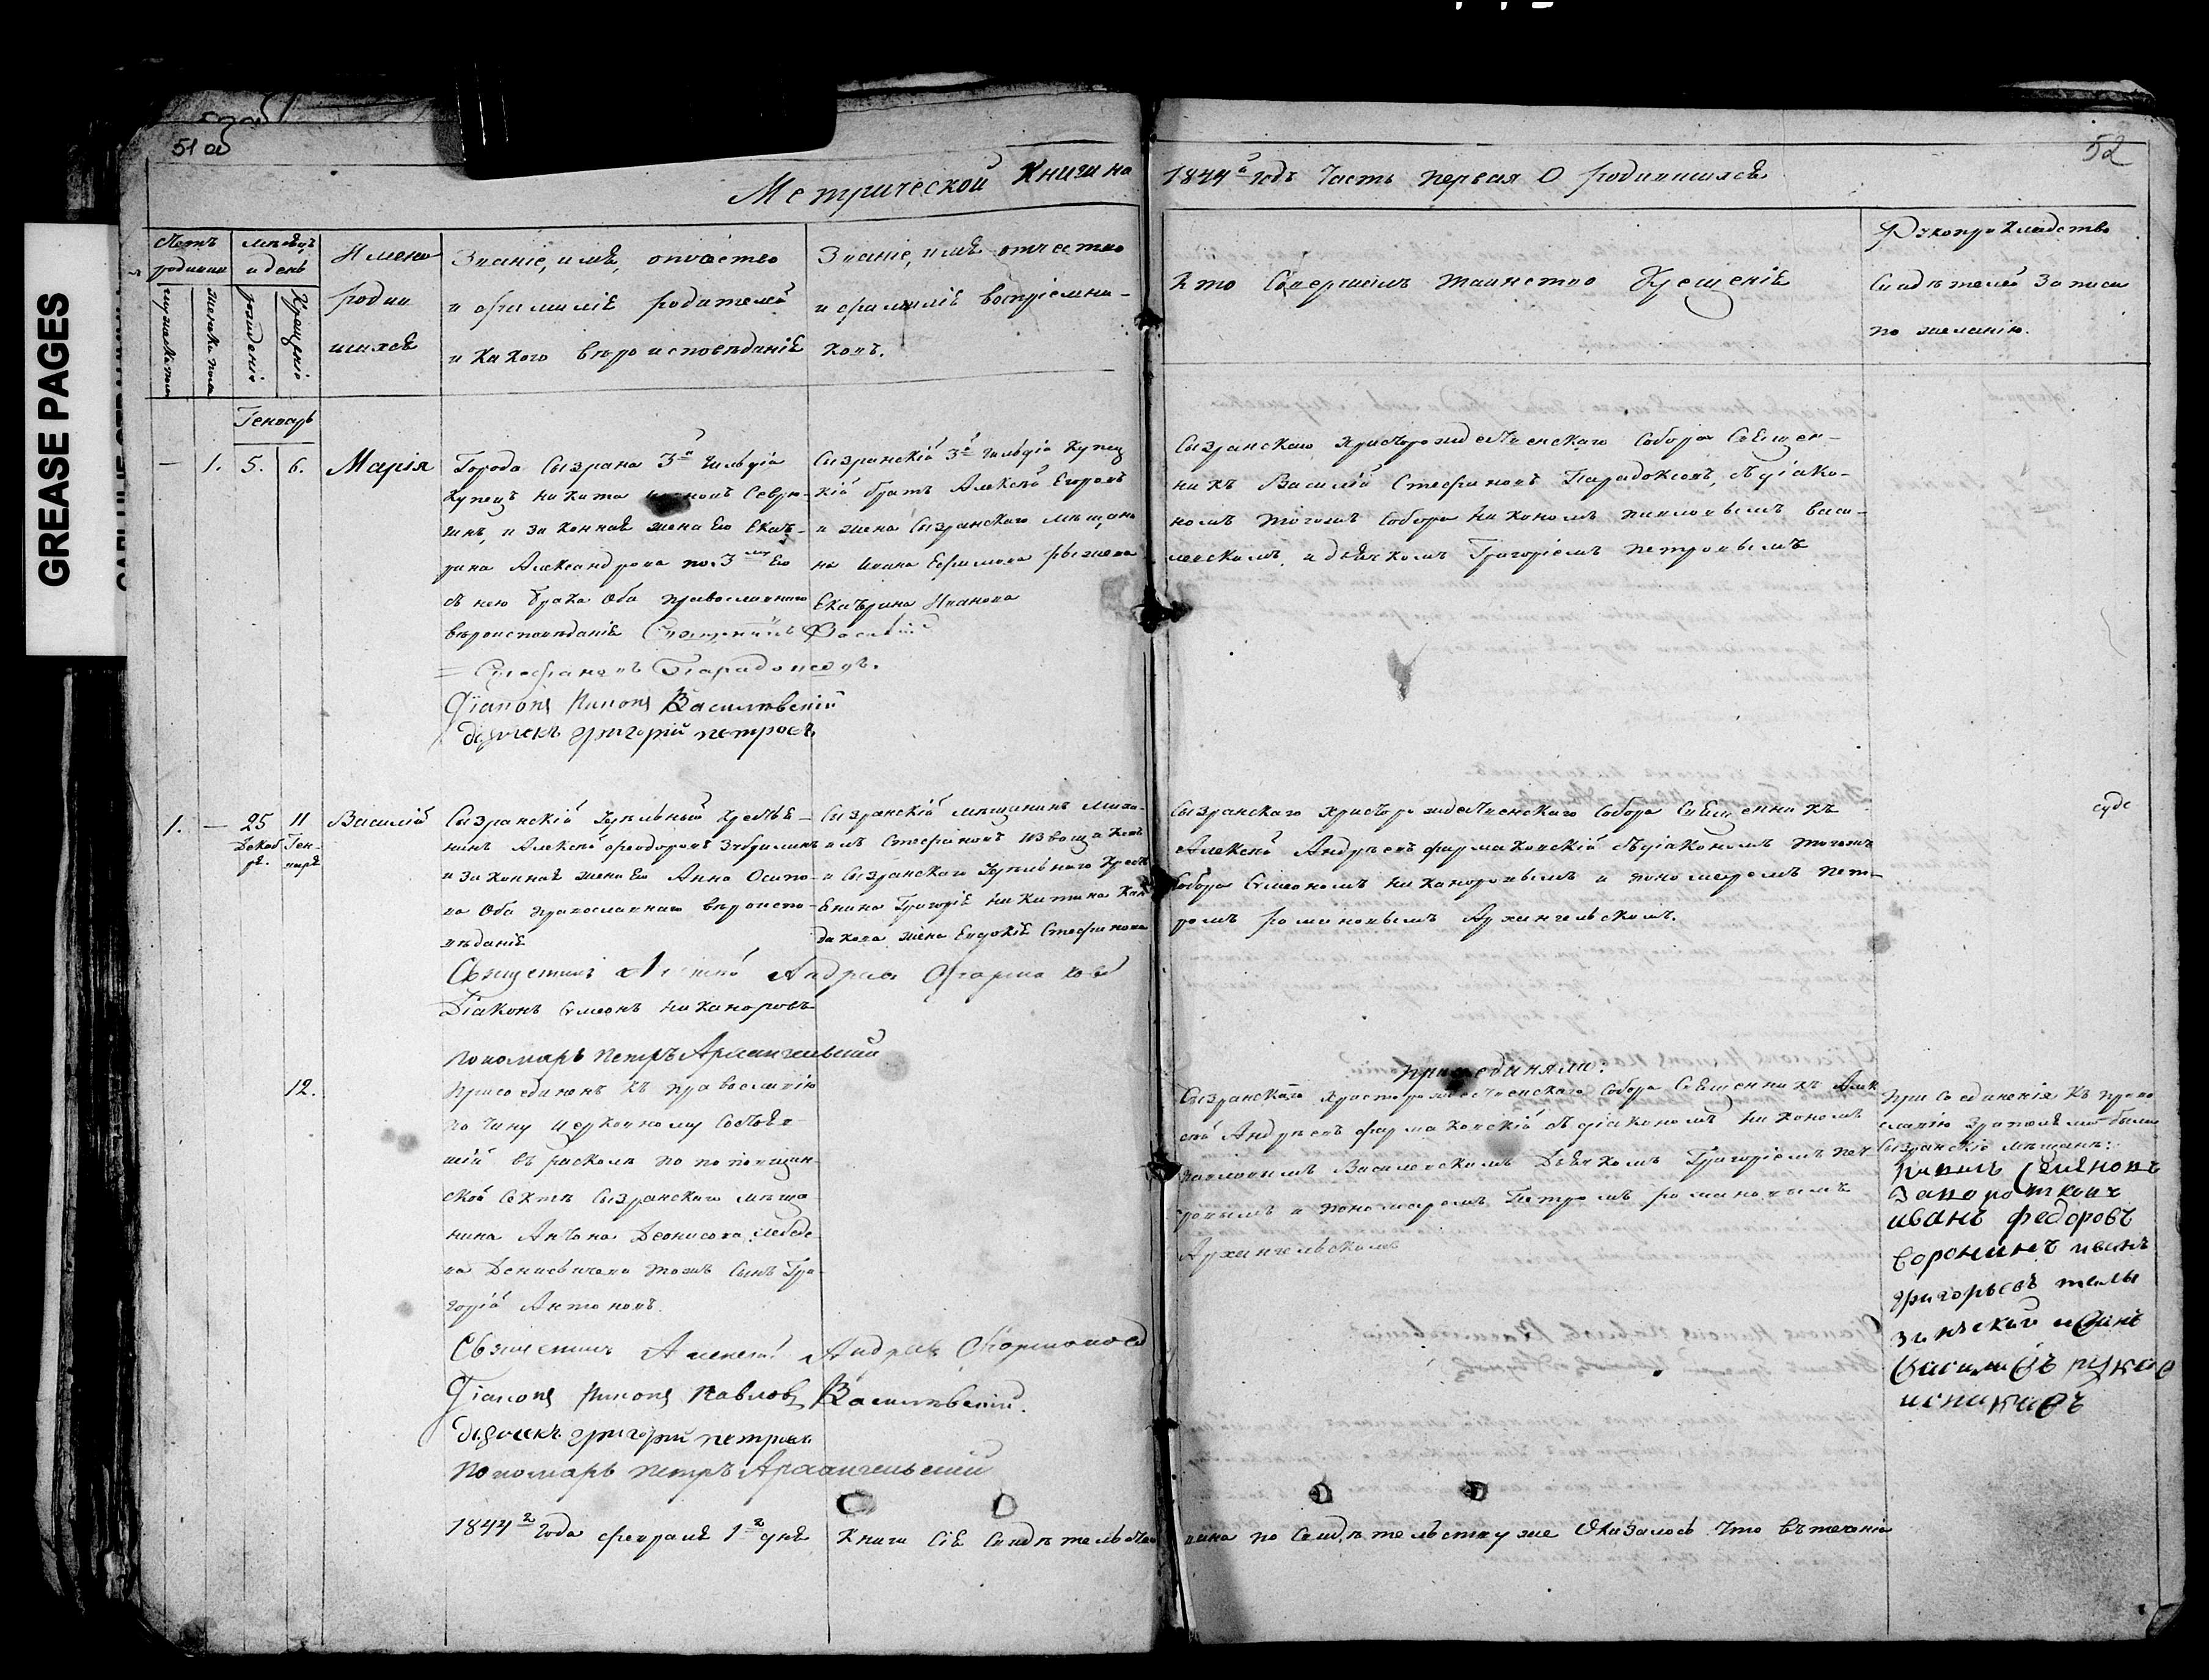 GREASE PAGES
51 об
52
Метрической Книги на 1844й годъ Часть Первая О родившихся
Счетъ родивш
мѣсяцъ и день
мужеска пола
женска пола
рожденія
Крещенія
Имена
родив
шихся
Званіе, имя, отчество
и фамилія родителей
и какого вѣроисповѣданія
Званіе, имя отчество
и фамилія воспріемни-
ковъ.
Кто Совершилъ таинство Крещенія
Рукоприкладство
Свидѣтелей Записи
по желанію.
Генварь
— 1. 5. 6. Марія
Города Сызрана 3й гильдіи
Купецъ Никита Севрю-
гинъ, и законная жена Его Екатѣ-
рина Александрова по 3му Его
съ нею брака Оба православнаго
вѣроисповѣданія Священникъ Василій
Стефановъ Парадоксовъ.
Діаконъ Никонъ Василевскій
дьячекъ григорій петровъ
Сызранскій 3й гильдіи Купец
кій братъ Алексѣй Егоровъ
и жена Сызранскаго мѣщани
на Ивана Ефимова
Екатѣрина Иванова
Сызранскаго Христорождественскаго Собора Священ-
никъ Василій Стефановъ Парадоксовъ, съ діако-
номъ тогожъ Собора Никономъ павловымъ васи-
левскимъ, и дьячкомъ Григоріемъ петровымъ
1. — 25 Декаб ря. 11 Ген- варя Василій
Сызранскій Удѣльный Кресть-
нинъ Алексѣй феодоровъ
и законная жена Его Анна Осипо-
ва Оба православнаго вѣроиспо-
вѣданія
Священникъ Алексѣй Андреевъ Фармаковскій
Діаконъ Симеонъ Никаноровъ
пономарь петръ Архангельскій
Сызранскій мѣщанинъ Миха-
илъ Стефановъ
и Сызранскаго Удѣльнаго Крестья
нина Григорія Никитина Кан
дакова жена Евдокія Стефанова
Сызранскаго Христорождественскаго Собора Священникъ
Алексѣй Андреевъ фармаковскій съ діакономъ тогожъ
Собора Симеономъ Никаноровымъ и пономаремъ пет-
ромъ романовымъ Архангельскимъ.
12.
Присоединенъ къ православію
по чину церковному Состояв-
шій въ расколѣ по поповщин-
ской Сектѣ Сызранскаго мѣща-
нина Антона Денисова Лебеде-
ва Денисьичева тожъ Сынъ Гри-
горій Антоновъ.
Священникъ Алексѣй Андреевъ
Діаконъ Никонъ Павловъ Василевскій.
дьячекъ григорій петровъ
пономарь петръ Архангельскій
присоединяли:
Сызранскаго Христорождественскаго Собора Священникъ Алек
сѣй Андреевъ фармаковскій съ діакономъ Никономъ
павловымъ Василевскимъ Дьячкомъ Григоріемъ пет-
ровымъ и пономаремъ Петромъ романовымъ
Архангельскимъ
При Соединенія къ право
славію были
Сызранскіе мѣщане:
Семяновъ
иванъ федоровъ
воронинъ иванъ
григорьевъ
1844го года февраля 1го дня Книга Сія Свидѣтельство
вана по Свидѣтельству же Оказалось что въ теченіи